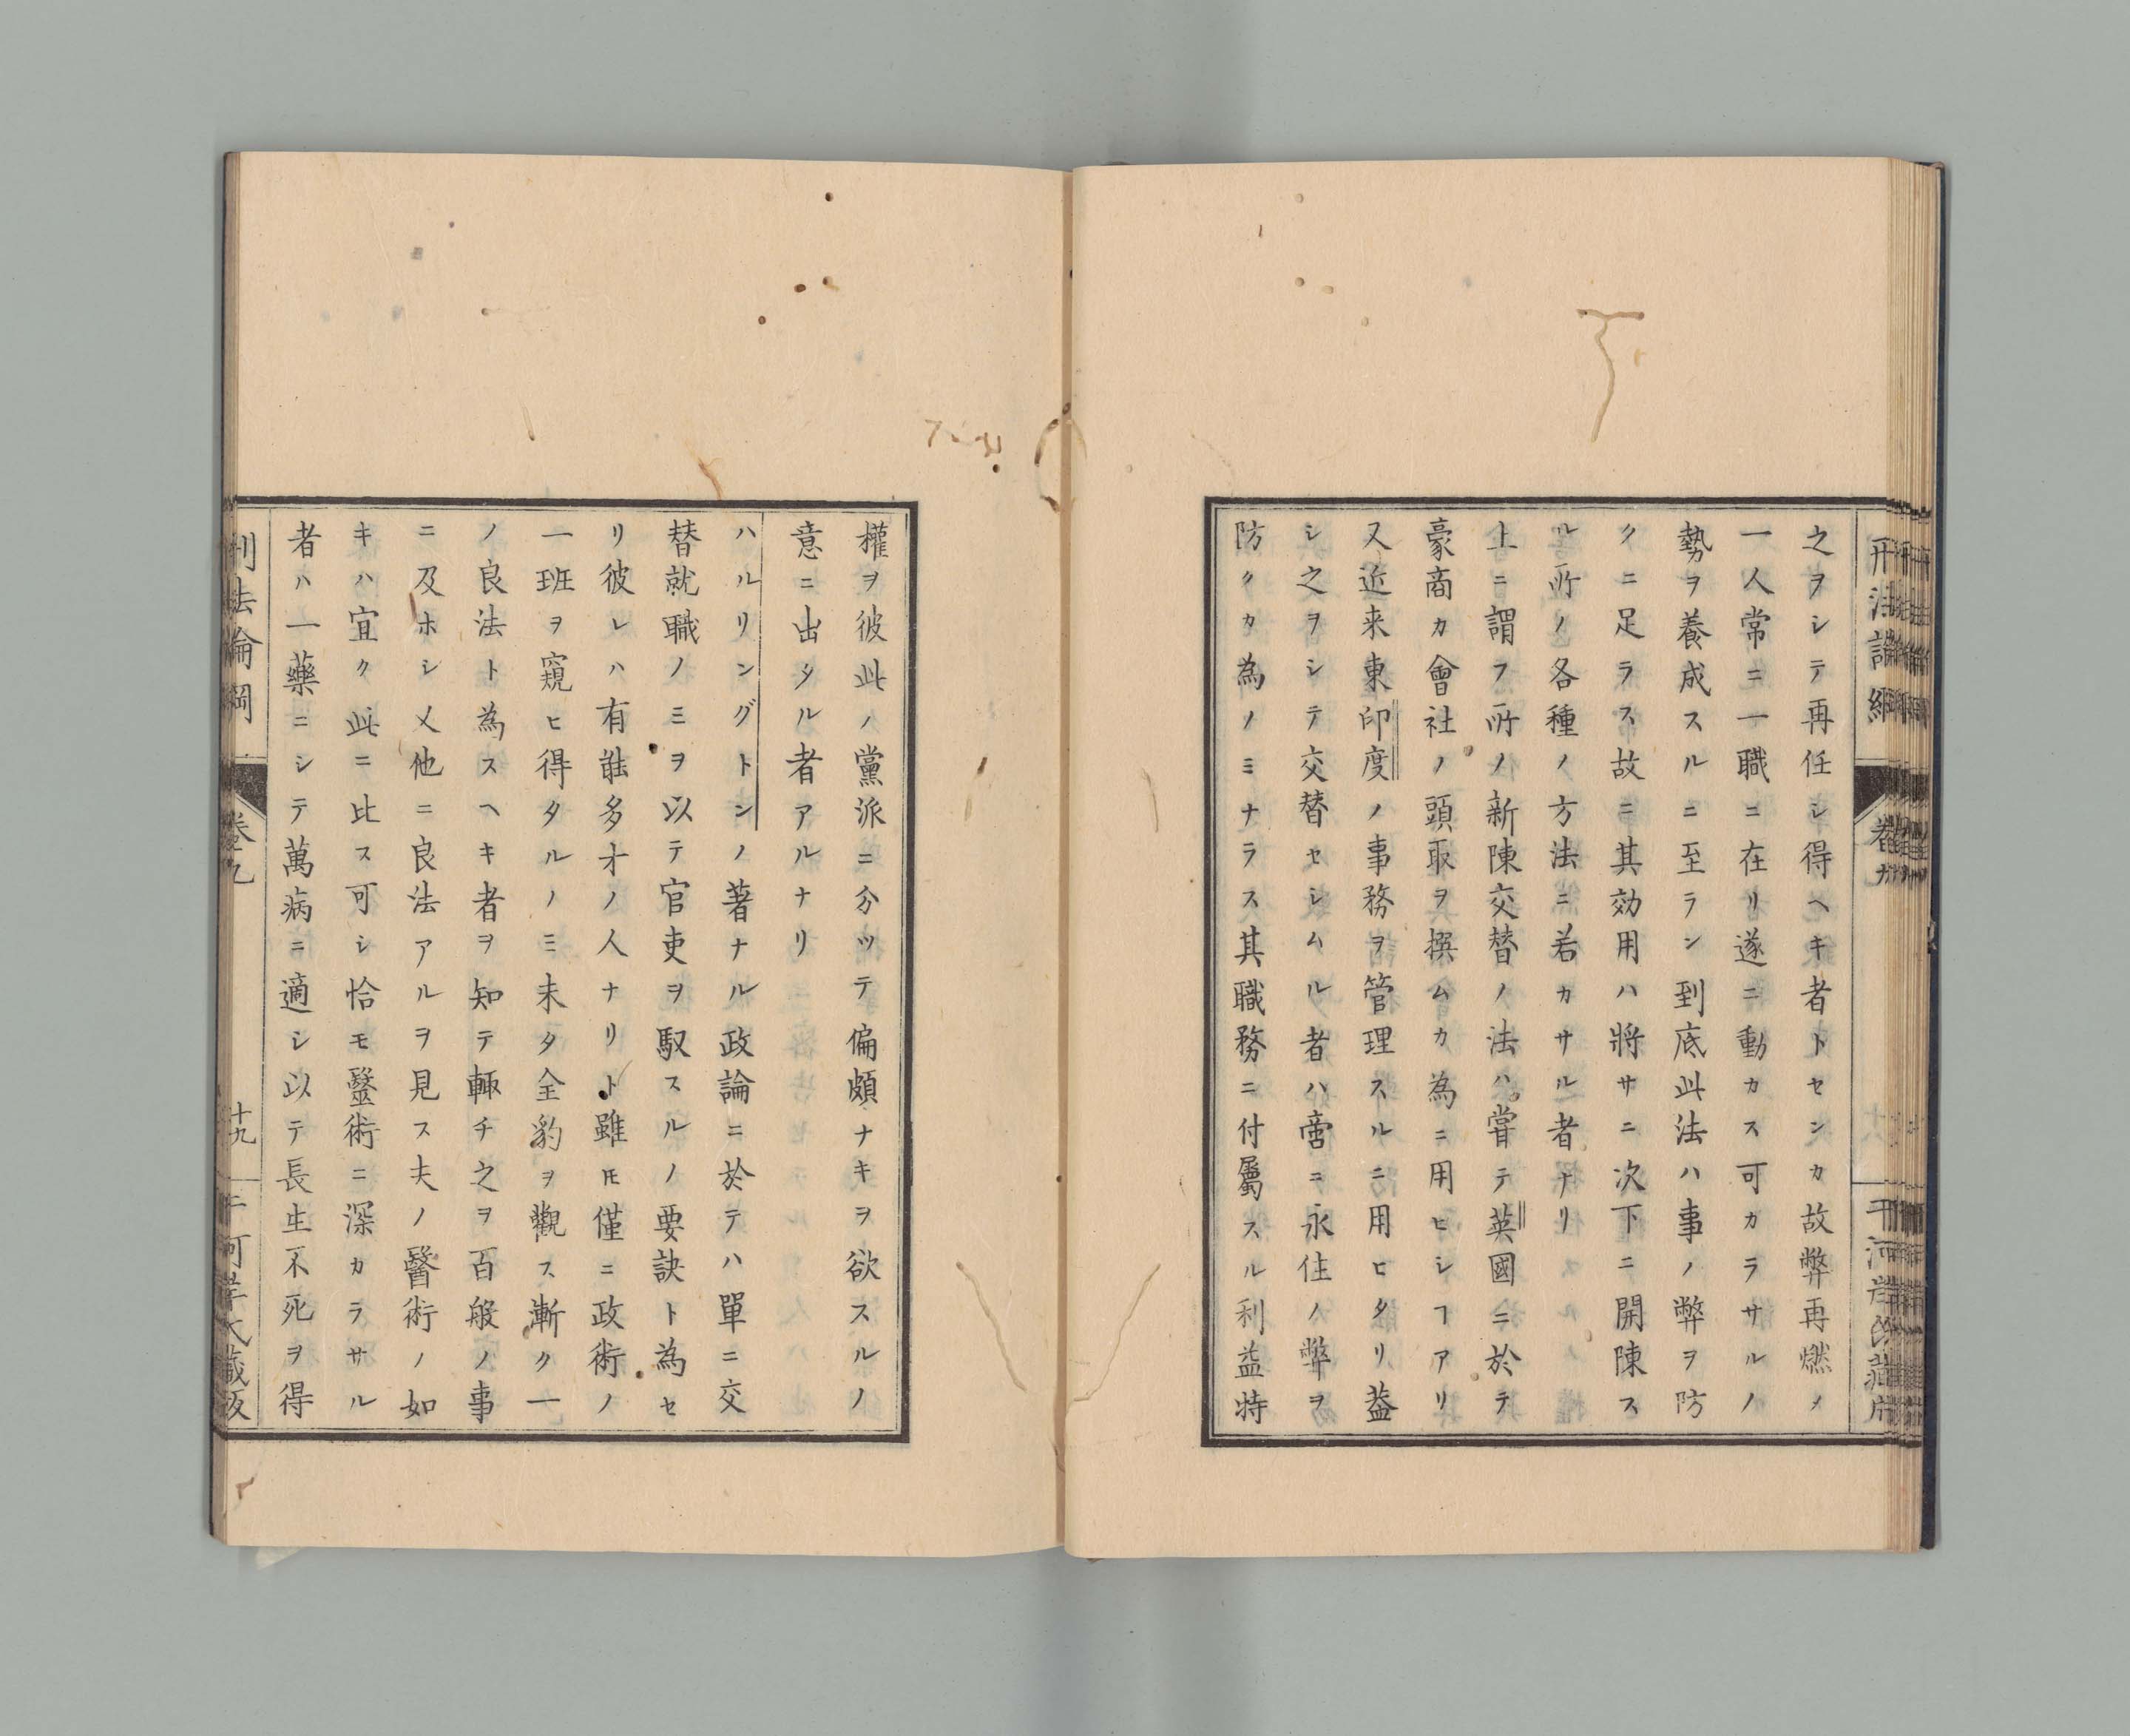 之ヲシテ再任シ得ヘキ者トセンカ故弊再燃ノ
一人常ニ一職ニ在リ遂ニ動カス可カラサルノ
勢ヲ養成スルニ至ラン到底此法ハ事ノ弊ヲ防
クニ足ラス故ニ其効用ハ將サニ次下ニ開陳ス
ル所ノ各種ノ方法ニ若カサル者ナリ
上ニ謂フ所ノ新陳交替ノ法ハ甞テ英國ニ於テ
豪商カ會社ノ頭取ヲ撰ムカ為ニ用ヒシヿアリ
又近来東印度ノ事務ヲ管理スルニ用ヒタリ葢
シ之ヲシテ交替セシムル者ハ啻ニ永住ノ弊ヲ
防クカ為ノミナラス其職務ニ付屬スル利益特
權ヲ彼此ノ黨派ニ分ツテ偏頗ナキヲ欲スルノ
意ニ出タル者アルナリ
ハルリングトンノ著ナル政論ニ於テハ單ニ交
替就職ノミヲ以テ官吏ヲ馭スルノ要訣ト為セ
リ彼レハ有能多才ノ人ナリト雖𪜈僅ニ政術ノ
一班ヲ窺ヒ得タルノミ未タ全豹ヲ觀ス漸ク一
ノ良法ト為スヘキ者ヲ知テ輙チ之ヲ百般ノ事
ニ及ホシ又他ニ良法アルヲ見ス夫ノ醫術ノ如
キハ宜ク此ニ比ス可シ恰モ毉術ニ深カラサル
者ハ一藥ニシテ萬病ニ適シ以テ長生不死ヲ得
刑法論綱
卷九
十九